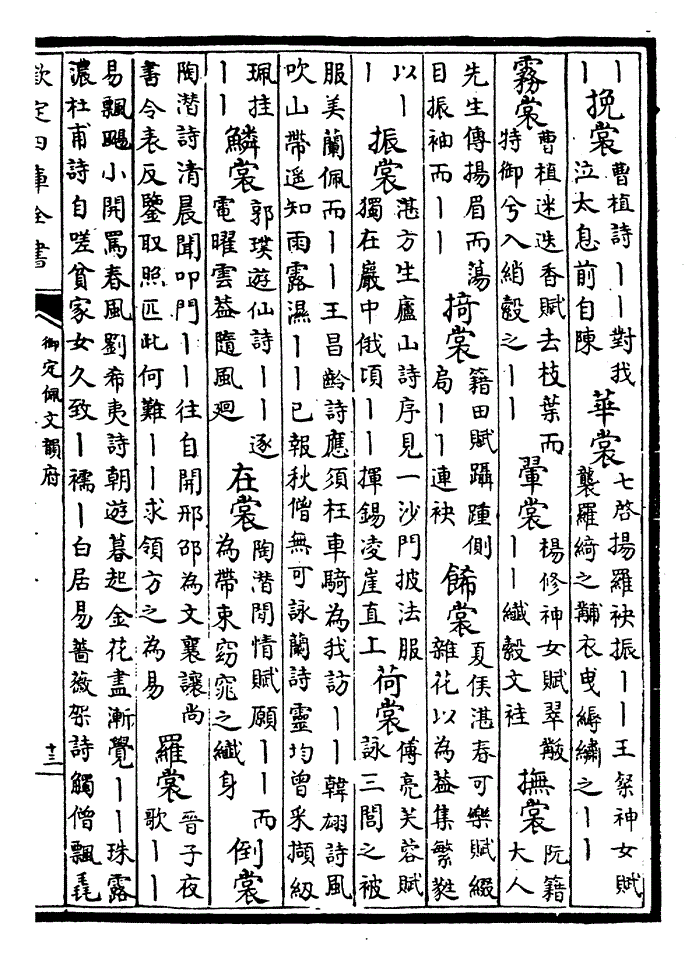 丨挽裳曹植詩丨丨對我泣太息前自陳華裳七啓揚羅袂振丨丨王粲神女賦襲羅綺之黼衣曳縟繡之丨丨
霧裳曹植迷迭香賦去枝葉而特御兮入綃縠之丨丨翬裳楊修神女賦翠黻丨丨纖縠文袿撫裳阮籍大人
先生傳揚眉而蕩目振袖而丨丨掎裳籍田賦躡踵側局丨丨連袂餙裳夏侯湛春可樂賦綴雜花以為葢集繁蕤
以丨丨振裳湛方生廬山詩序見一沙門披法服獨在巖中俄頃丨丨揮錫凌崖直上荷裳傅亮芙蓉賦詠三閭之被
服美蘭佩而丨丨王昌齡詩應須枉車騎為我訪丨丨韓翃詩風吹山帶遥知雨露濕丨丨已報秋僧無可詠蘭詩靈均曾采擷紉
珮挂丨丨鱗裳郭璞遊仙詩丨丨逐電曜雲葢隨風廻在裳陶潛閒情賦願丨丨而為帶束窈窕之纖身倒裳
陶潛詩清晨聞叩門丨丨往自開邢邵為文襄讓尚書令表反鑒取照匹此何難丨丨求領方之為易羅裳晉子夜歌丨丨
易飄颺小開罵春風劉希夷詩朝遊暮起金花盡漸覺丨丨珠露濃杜甫詩自嗟貧家女久致丨襦丨白居易薔薇架詩觸僧飄毳
欽定四庫全書
御定佩文韻府
十三